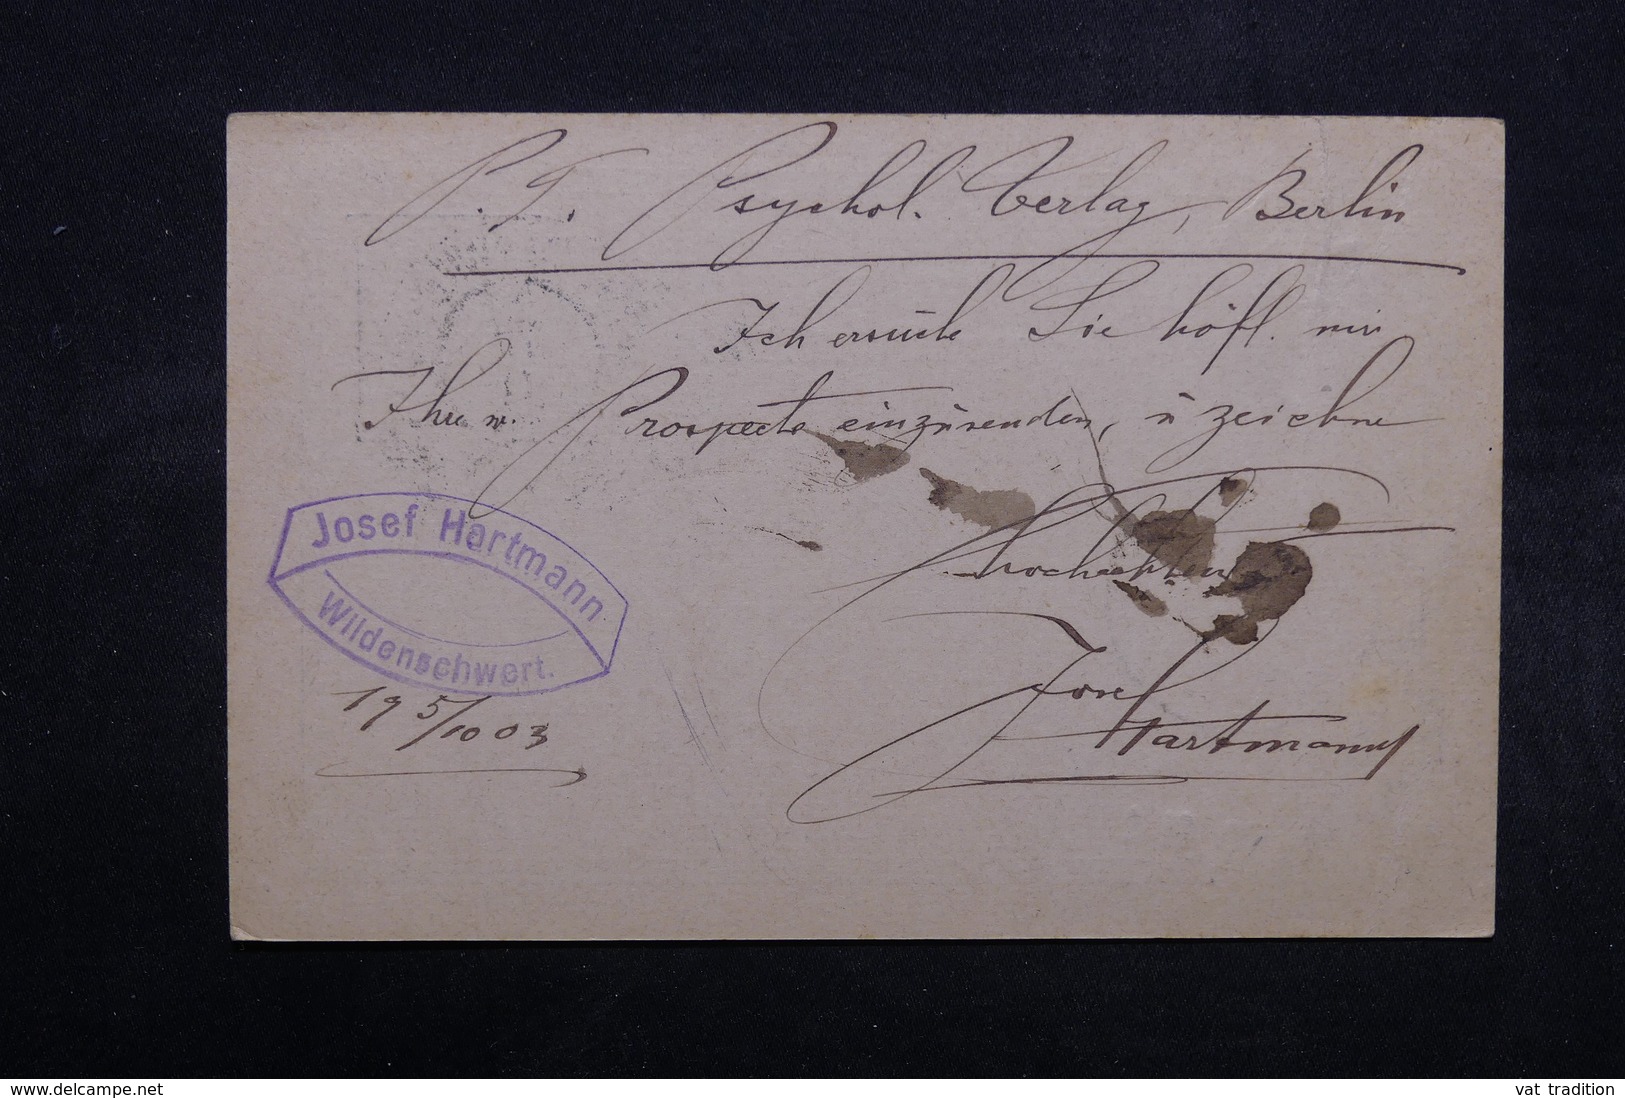 P. T. Psychol. Verlag, Berlin
Ich ersuche Sie höfl. mir
Ihre w. Prospecte einzusenden, u zeichne
hochachtend
Josef
Hartmann
Josef Hartmann
Wildenschwert.
19 5/10 03
www.delcampe.net
vat tradition